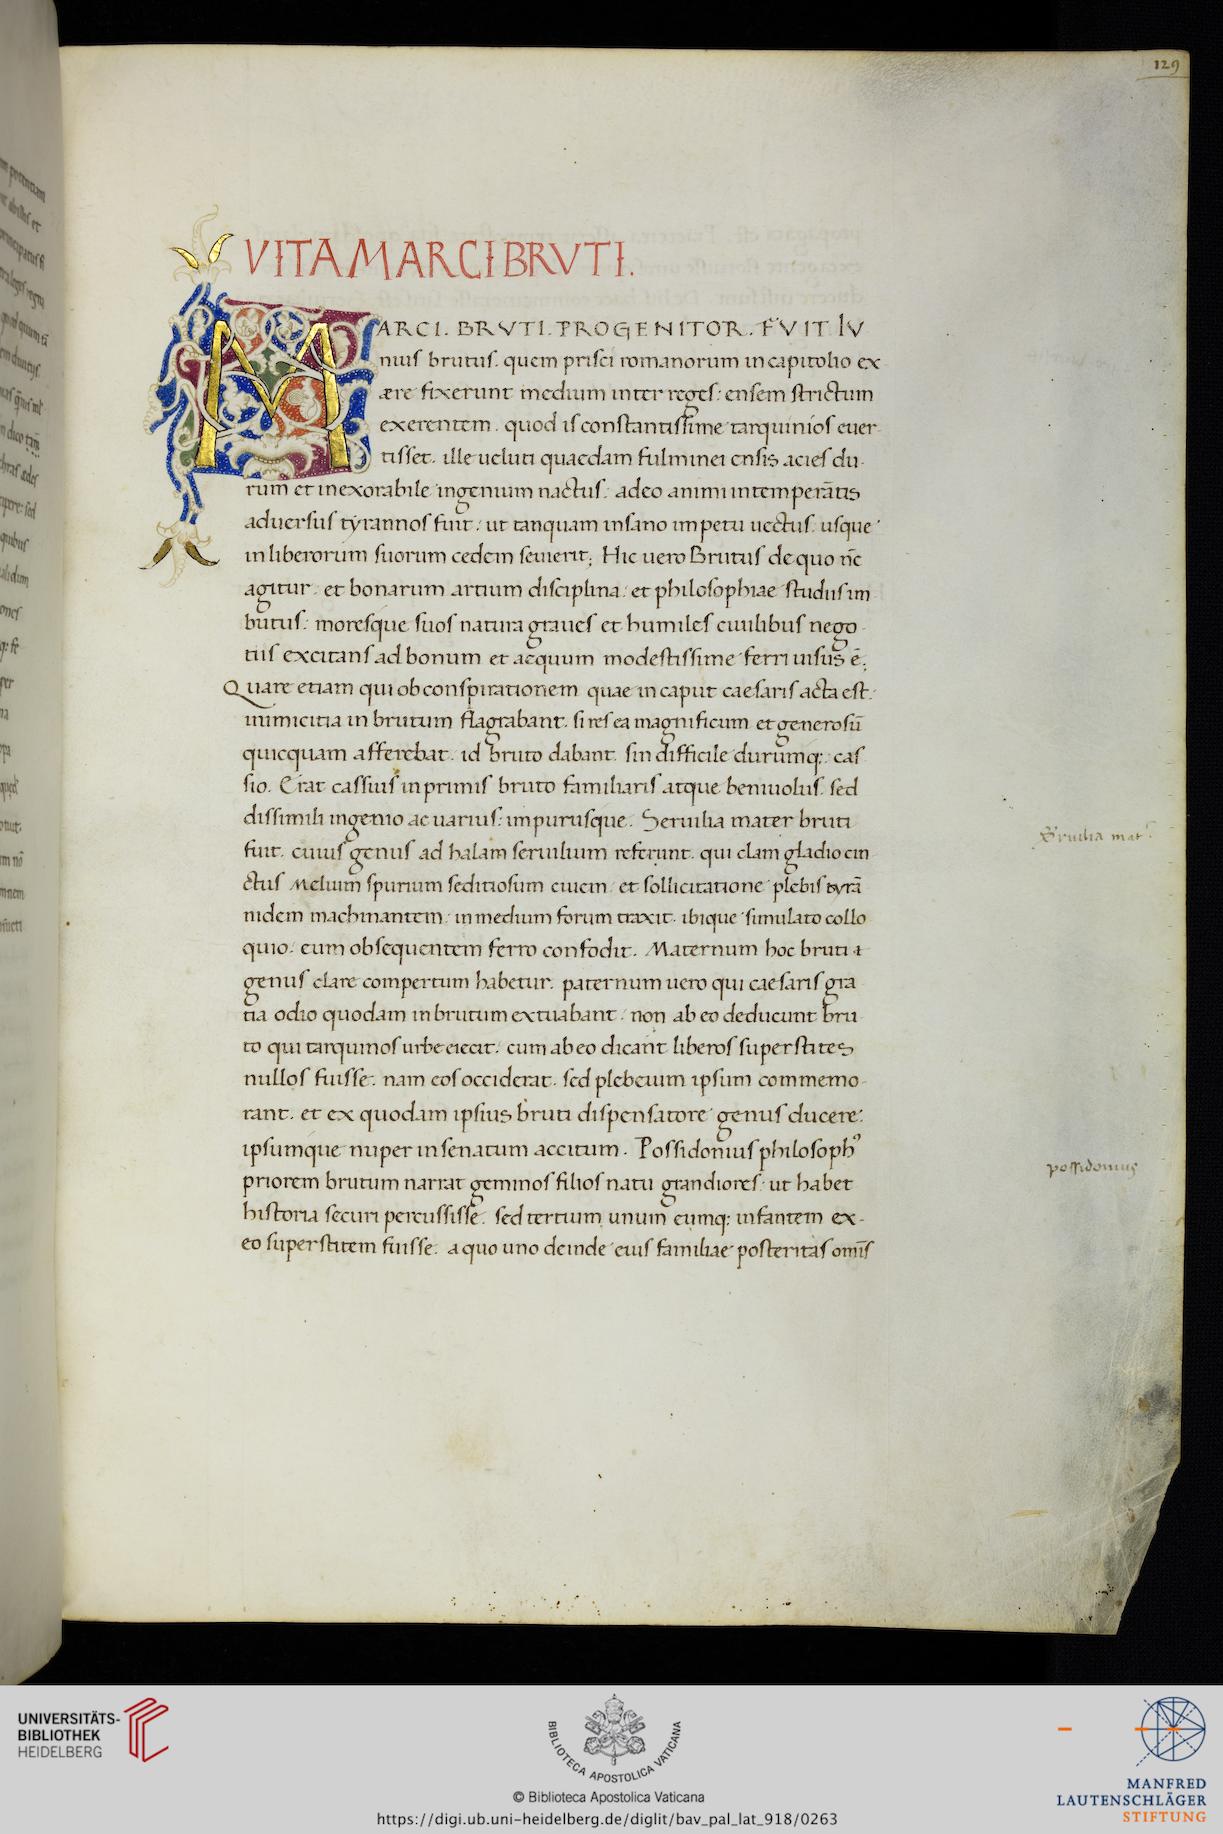 129
VITA MARCI BRVTI.
MARCI. BRVTI. PROGENITOR. FVIT IV
nius brutus. quem prisci romanorum in capitolio ex
ære fixerunt medium inter reges: ensem strictum
exerentem. quod is constantissime tarquinios euer
tisset. ille ueluti quaedam fulminei ensis acies du
rum et inexorabile ingenium nactus: adeo animi intemperãtis
aduersus tyrannos fuit: ut tanquam insano impetu uectus. usque
in liberorum suorum cedem seuierit; Hic uero Brutus de quo nc̃
agitur. et bonarum artium disciplina. et philosophiae studiis im
butus: moresque suos natura graues et humiles ciuilibus nego
tiis excitans ad bonum et aequum modestissime ferri uisus ẽ;
Quare etiam qui ob conspirationem quae in caput caesaris acta est.
inimicitia in brutum flagrabant. si res ea magnificum et generosũ
quicquam afferebat. id bruto dabant. sin difficile durumq; cas
sio. Erat cassius in primis bruto familiaris atque beniuolus. sed
dissimili ingenio ac uarius: impurusque. Seruilia mater bruti
fuit. cuius genus ad halam seruilium referunt. qui clam gladio cin
ctus Melium spurium seditiosum ciuem. et sollicitatione plebis tyrã
nidem machinantem. in medium forum traxit. ibique simulato collo
quio. eum obsequentem ferro confodit. Maternum hoc bruti
genus clare compertum habetur. paternum uero qui caesaris gra
tia odio quodam in brutum extuabant. non ab eo deducunt bru
to qui tarquinos urbe eiecit. cum ab eo dicant liberos superstites
nullos fuisse. nam eos occiderat. sed plebeium ipsum commemo
rant. et ex quodam ipsius bruti dispensatore genus ducere:
ipsumque nuper in senatum accitum. Possidonius philosophꝰ
priorem brutum narrat geminos filios natu grandiores. ut habet
historia securi percussisse. sed tertium unum eumq; infantem ex
eo superstitem fuisse. a quo uno deinde eius familiae posteritas omĩs
Seruilia mat
possidonius
UNIVERSITÄTS-
BIBLIOTHEK
HEIDELBERG
BIBLIOTECA APOSTOLICA VATICANA
© Biblioteca Apostolica Vaticana
https://digi.ub.uni-heidelberg.de/diglit/bav_pal_lat_918/0263
MANFRED
LAUTENSCHLÄGER
STIFTUNG